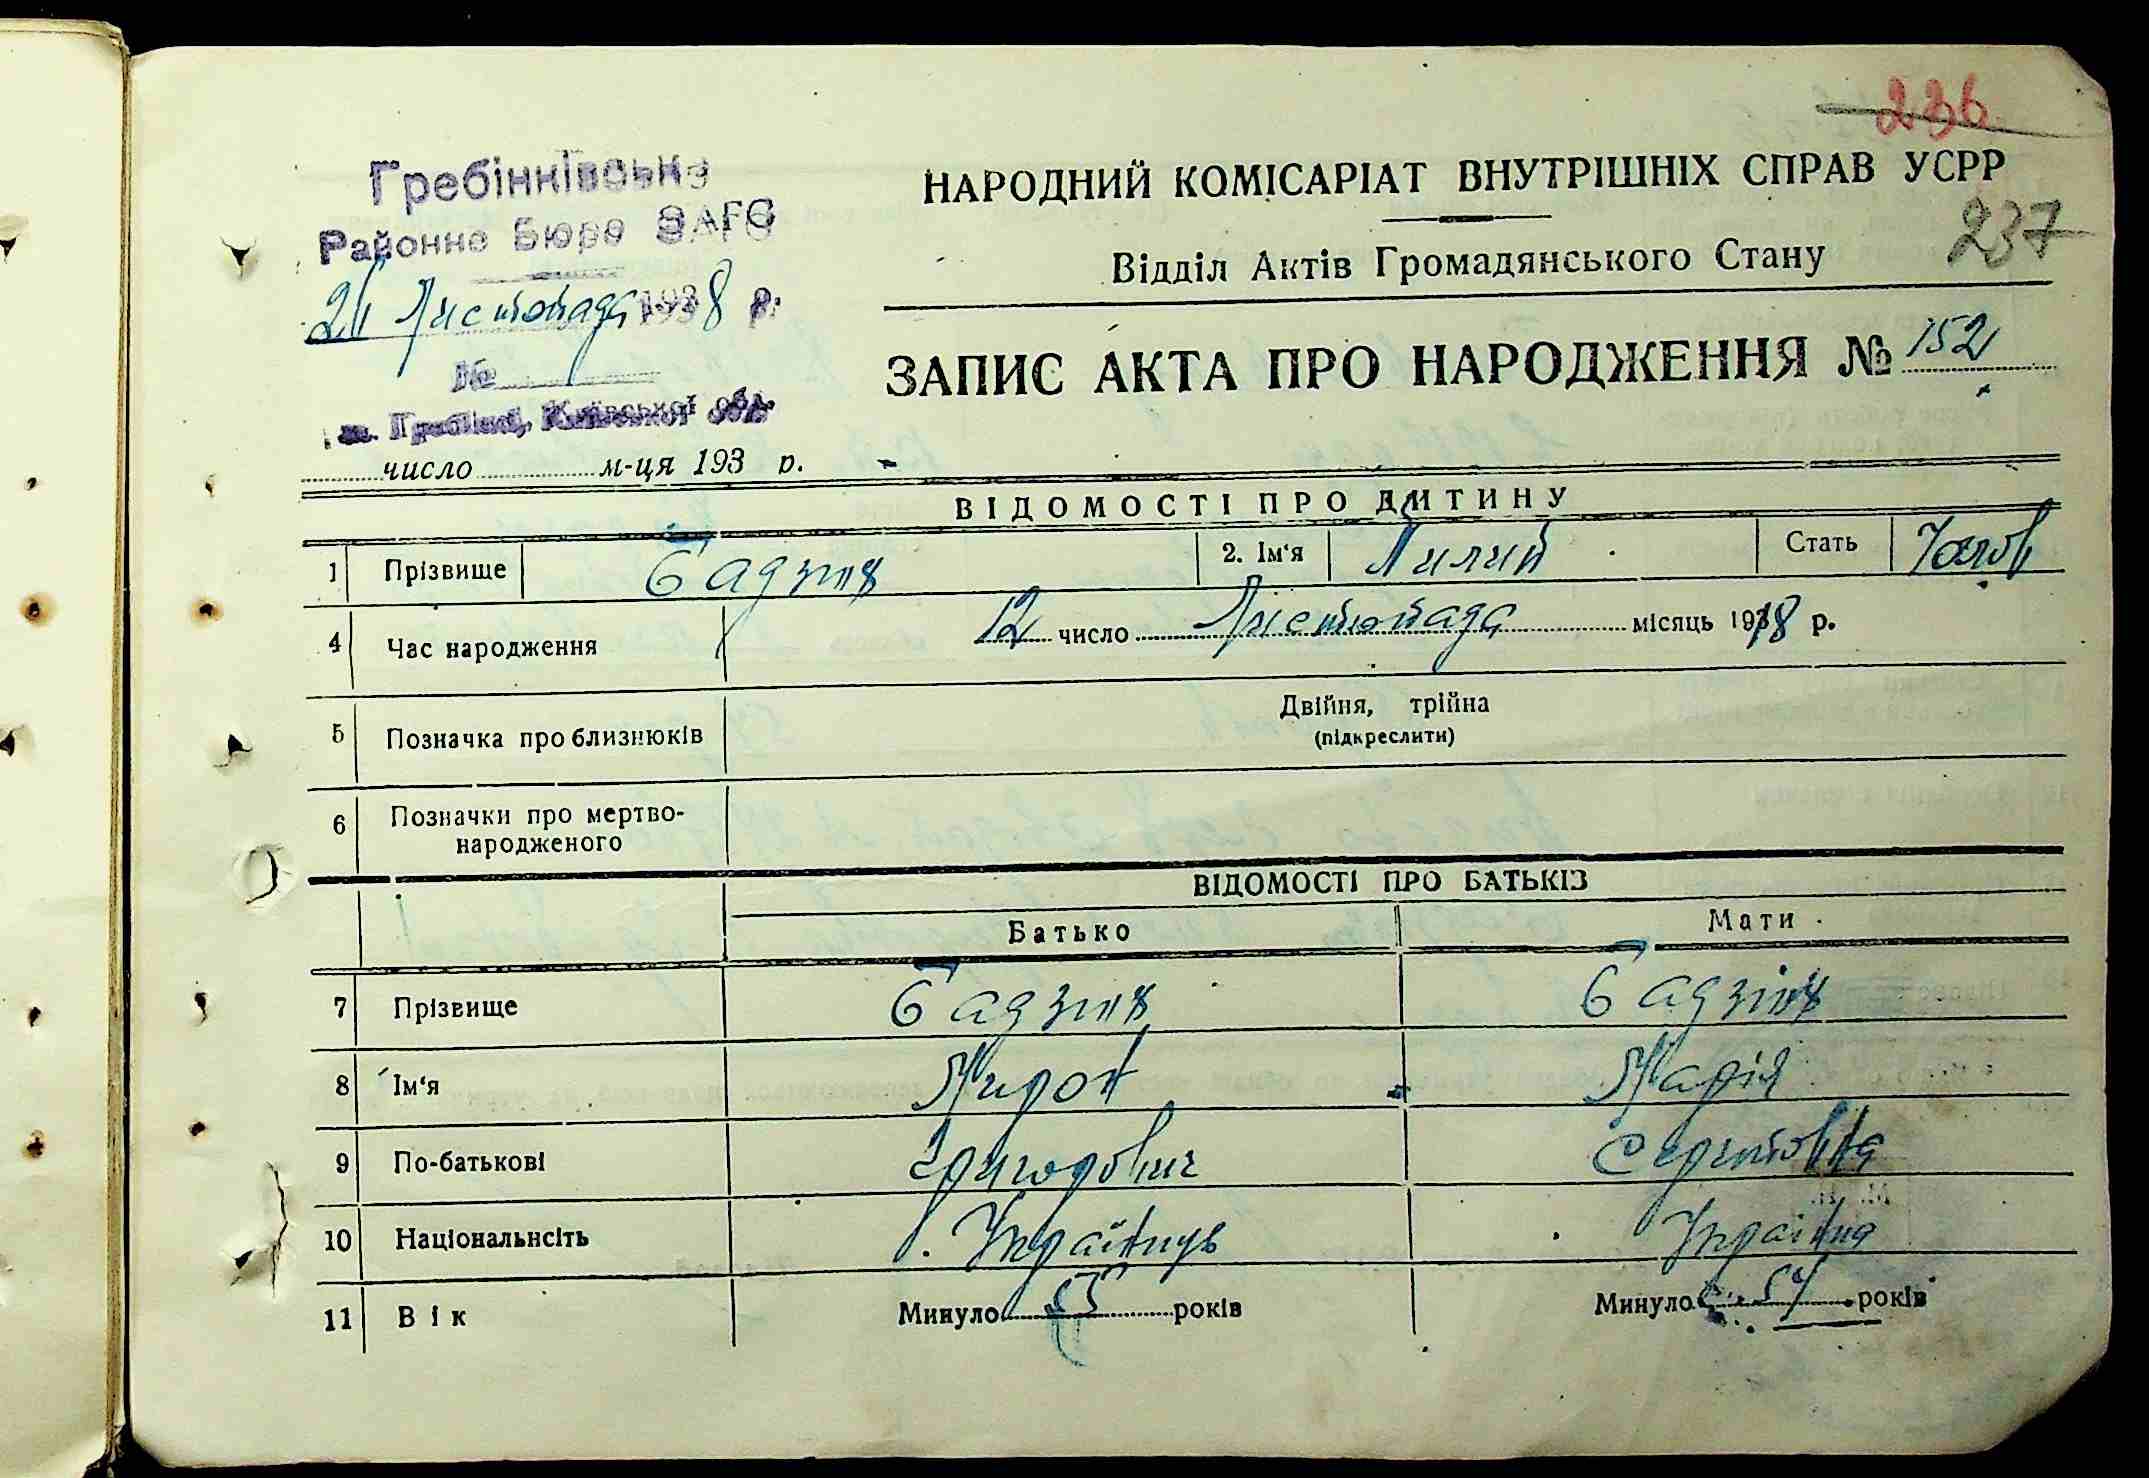 236
Гребінківське
Районне Бюро ЗАГС
21 Листопада 1938 р.
№
м. Гребінки, Київської обл.
число м-ця 193 р.
НАРОДНИЙ КОМІСАРІАТ ВНУТРІШНІХ СПРАВ УСРР
237
Відділ Актів Громадянського Стану
ЗАПИС АКТА ПРО НАРОДЖЕННЯ № 152
ВІДОМОСТІ ПРО ДИТИНУ
1 Прізвище Бадзюх 2. Ім'я Стать Чолов
4 Час народження 12 число Листопада місяць 1918 р.
5 Позначка про близнюків Двійня, трійна
(підкреслити)
6 Позначки про мертво-
народженого
ВІДОМОСТІ ПРО БАТЬКІЗ
Батько Мати
7 Прізвище Бадзюх Бадзюх
8 Ім'я Мирон Марія
9 По-батькові Григорович
10 Національнсіть Українць Українка
11 Вік Минуло років Минуло 54 років